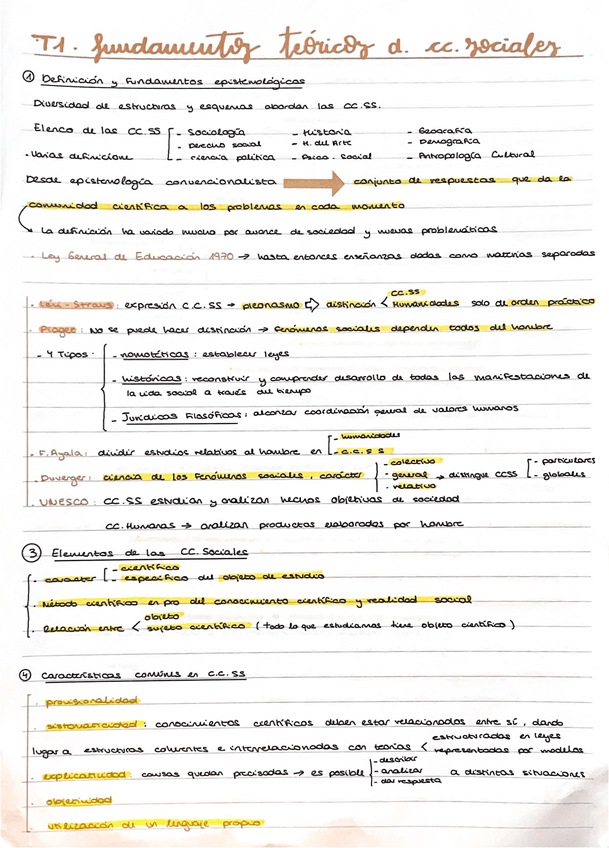 T1. fundamentos teóricos d. cc. sociales
① Definición y Fundamentos epistemológicos
Diversidad de estructuras y esquemas abordan las CC.SS.
Elenco de las CC.SS - Sociología - Historia - Geografía
- Derecho social - H. del Arte - Demografía
· Varias definicione - ciencia política - Psico. Social - Antropología Cultural
Desde epistemología convencionalista → conjunto de respuestas que da la
comunidad científica a los problemas en cada momento
La definición ha variado mucho por avance de sociedad y nuevas problemáticas
· Ley General de Educación 1970 → hasta entonces enseñanzas dadas como materias separadas
· Lévi-Straus: expresión C.C.SS → pleonasmo ⇨ distinción < CC.SS Humanidades solo de orden práctico
· Piaget: No se puede hacer distinción → Fenómenos sociales dependen todos del hombre
- 4 Tipos · - nomotéticas: establecer leyes
- históricas: reconstruir y comprender desarrollo de todas las manifestaciones de
la vida social a través del tiempo
- Jurídicas Filosóficas: alcanzar coordinación general de valores humanos
· F. Ayala: dividir estudios relativos al hombre en - humanidades - C.C.S S
· Duverger: ciencia de los fenómenos sociales, carácter - colectivo - general - relativo → distingue CCSS - particulares - globales
· UNESCO: CC.SS estudian y analizan hechos objetivas de sociedad
CC. Humanas → analizan productos elaborados por hombre
③ Elementos de las CC. Sociales
· caracter - científico - específico del objeto de estudio
· Método científico en pro del conocimiento científico y realidad social
· Relación entre < objeto sujeto científico (todo lo que estudiamos tiene objeto científico)
④ Características comunes en C.C. SS
· provisionalidad
· sistematicidad: conocimientos científicos deben estar relacionados entre sí, dando
lugar a estructuras coherentes e interrelacionadas con teorías < estructuradas en leyes representadas por modelos
· explicatividad: causas quedan precisadas → es posible - describir - analizar - dar respuesta a distintas situaciones
· objetividad
· utilización de un lenguaje propio